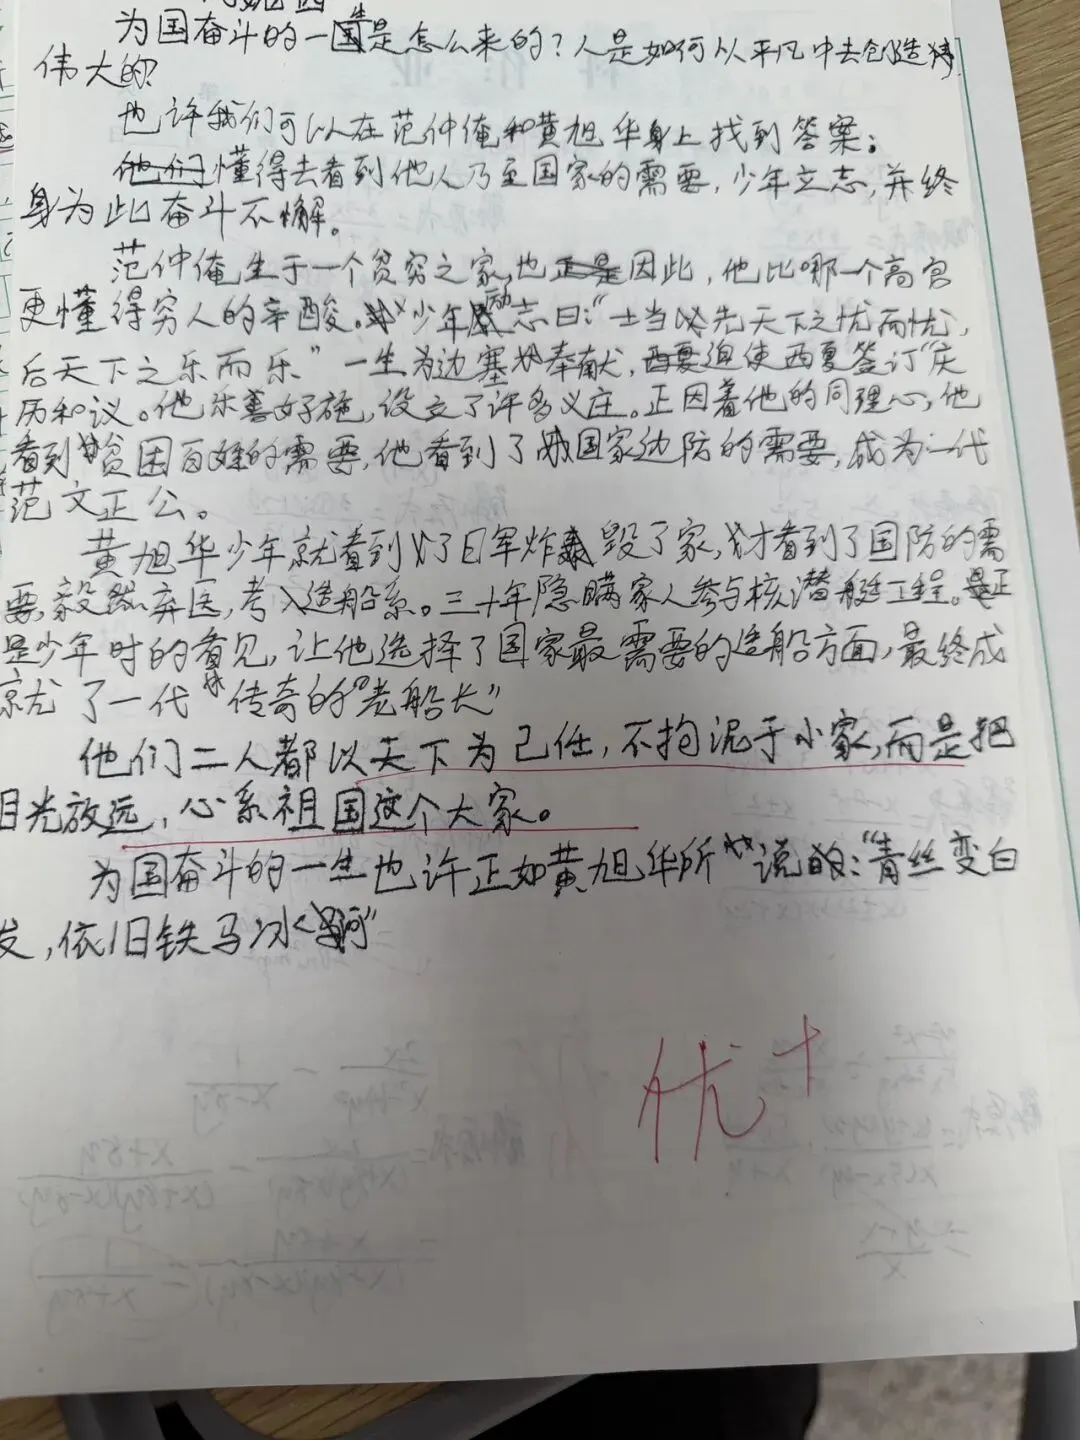 为国奋斗的一生是怎么来的？人是如何以平凡中去创造
伟大的？
也许我们可以在范仲俺和黄旭华身上找到答案：
懂得去看到他人乃至国家的需要，少年立志，并终
身为此奋斗不懈。
范仲俺生于一个贫穷之家，也因此，他比哪一个高官
更懂得穷人的辛酸。少年励志曰：“士当先天下之忧而忧，
后天下之乐而乐”一生为边塞奉献，迫使西夏签订“庆
历和议。他乐善好施，设立了许多义庄。正因着他的同理心，他
看到贫困百姓的需要，他看到了国家边防的需要，成为一代
范文正公。
黄旭华少年就看到了日军炸毁了家，才看到了国防的需
要，毅然弃医，考入造船系。三十年隐瞒家人参与核潜艇工程。正
是少年时的看见，让他选择了国家最需要的造船方面，最终成
就了一代传奇的“老船长”
他们二人都以天下为己任，不拘泥于小家，而是把
目光放远，心系祖国这个大家。
为国奋斗的一生也许正如黄旭华所说的：“青丝变白
发，依旧铁马冰河”
优+